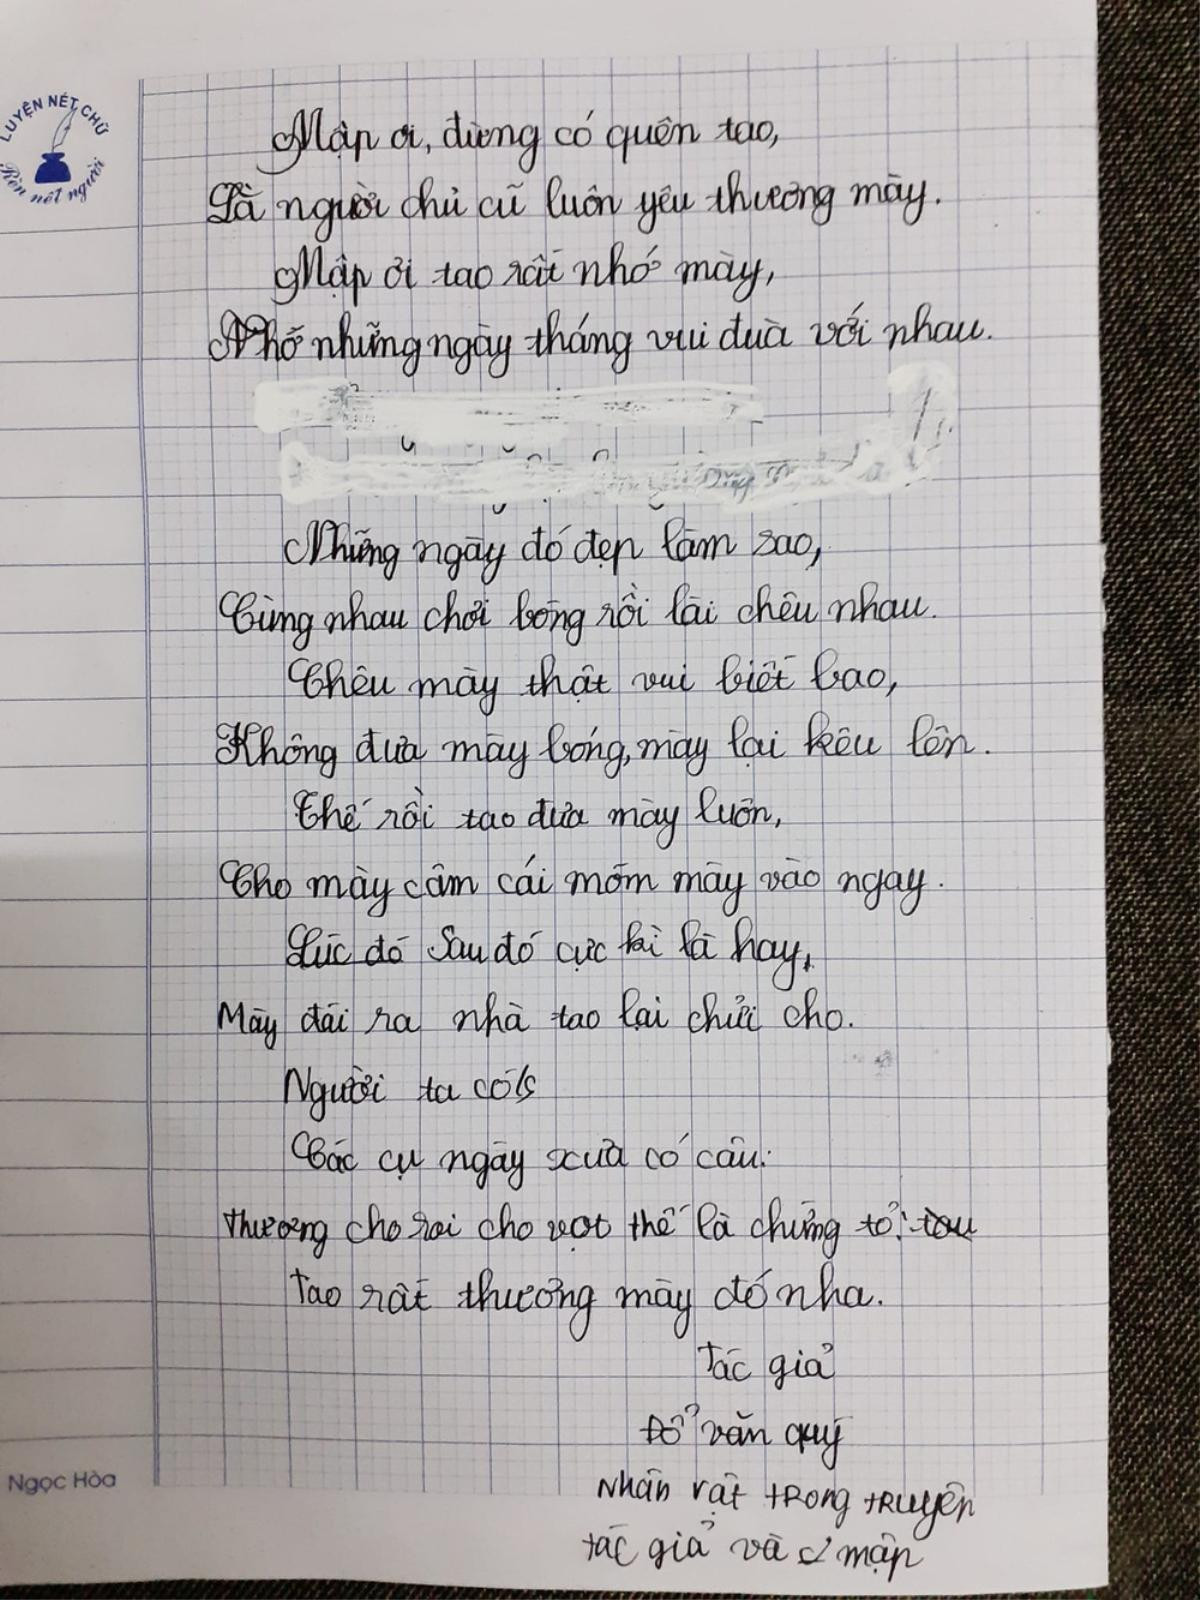 LUYỆN NÉT CHỮ
Rèn nết người
Mập ơi, đừng có quên tao,
Là người chủ cũ luôn yêu thương mày.
Mập ơi tao rất nhớ mày,
Nhớ những ngày tháng vui đùa với nhau.
Những ngày đó đẹp làm sao,
Cùng nhau chơi bóng rồi lài chêu nhau.
Chêu mày thật vui biết bao,
Không đưa mày bóng, mày lại kêu lên.
Thế rồi tao đưa mày luôn,
Cho mày câm cái mồm mày vào ngay.
Lúc đó Sau đó cực kì là hay,
Mày đái ra nhà tao lại chửi cho.
Người ta có
Các cụ ngày xưa có câu:
Thương cho roi cho vọt thế là chứng tỏ:
Tao rất thương mày đó nha.
Tác giả
Đổ văn quý
Nhân vật trong truyện
tác giả và mập
Ngọc Hòa